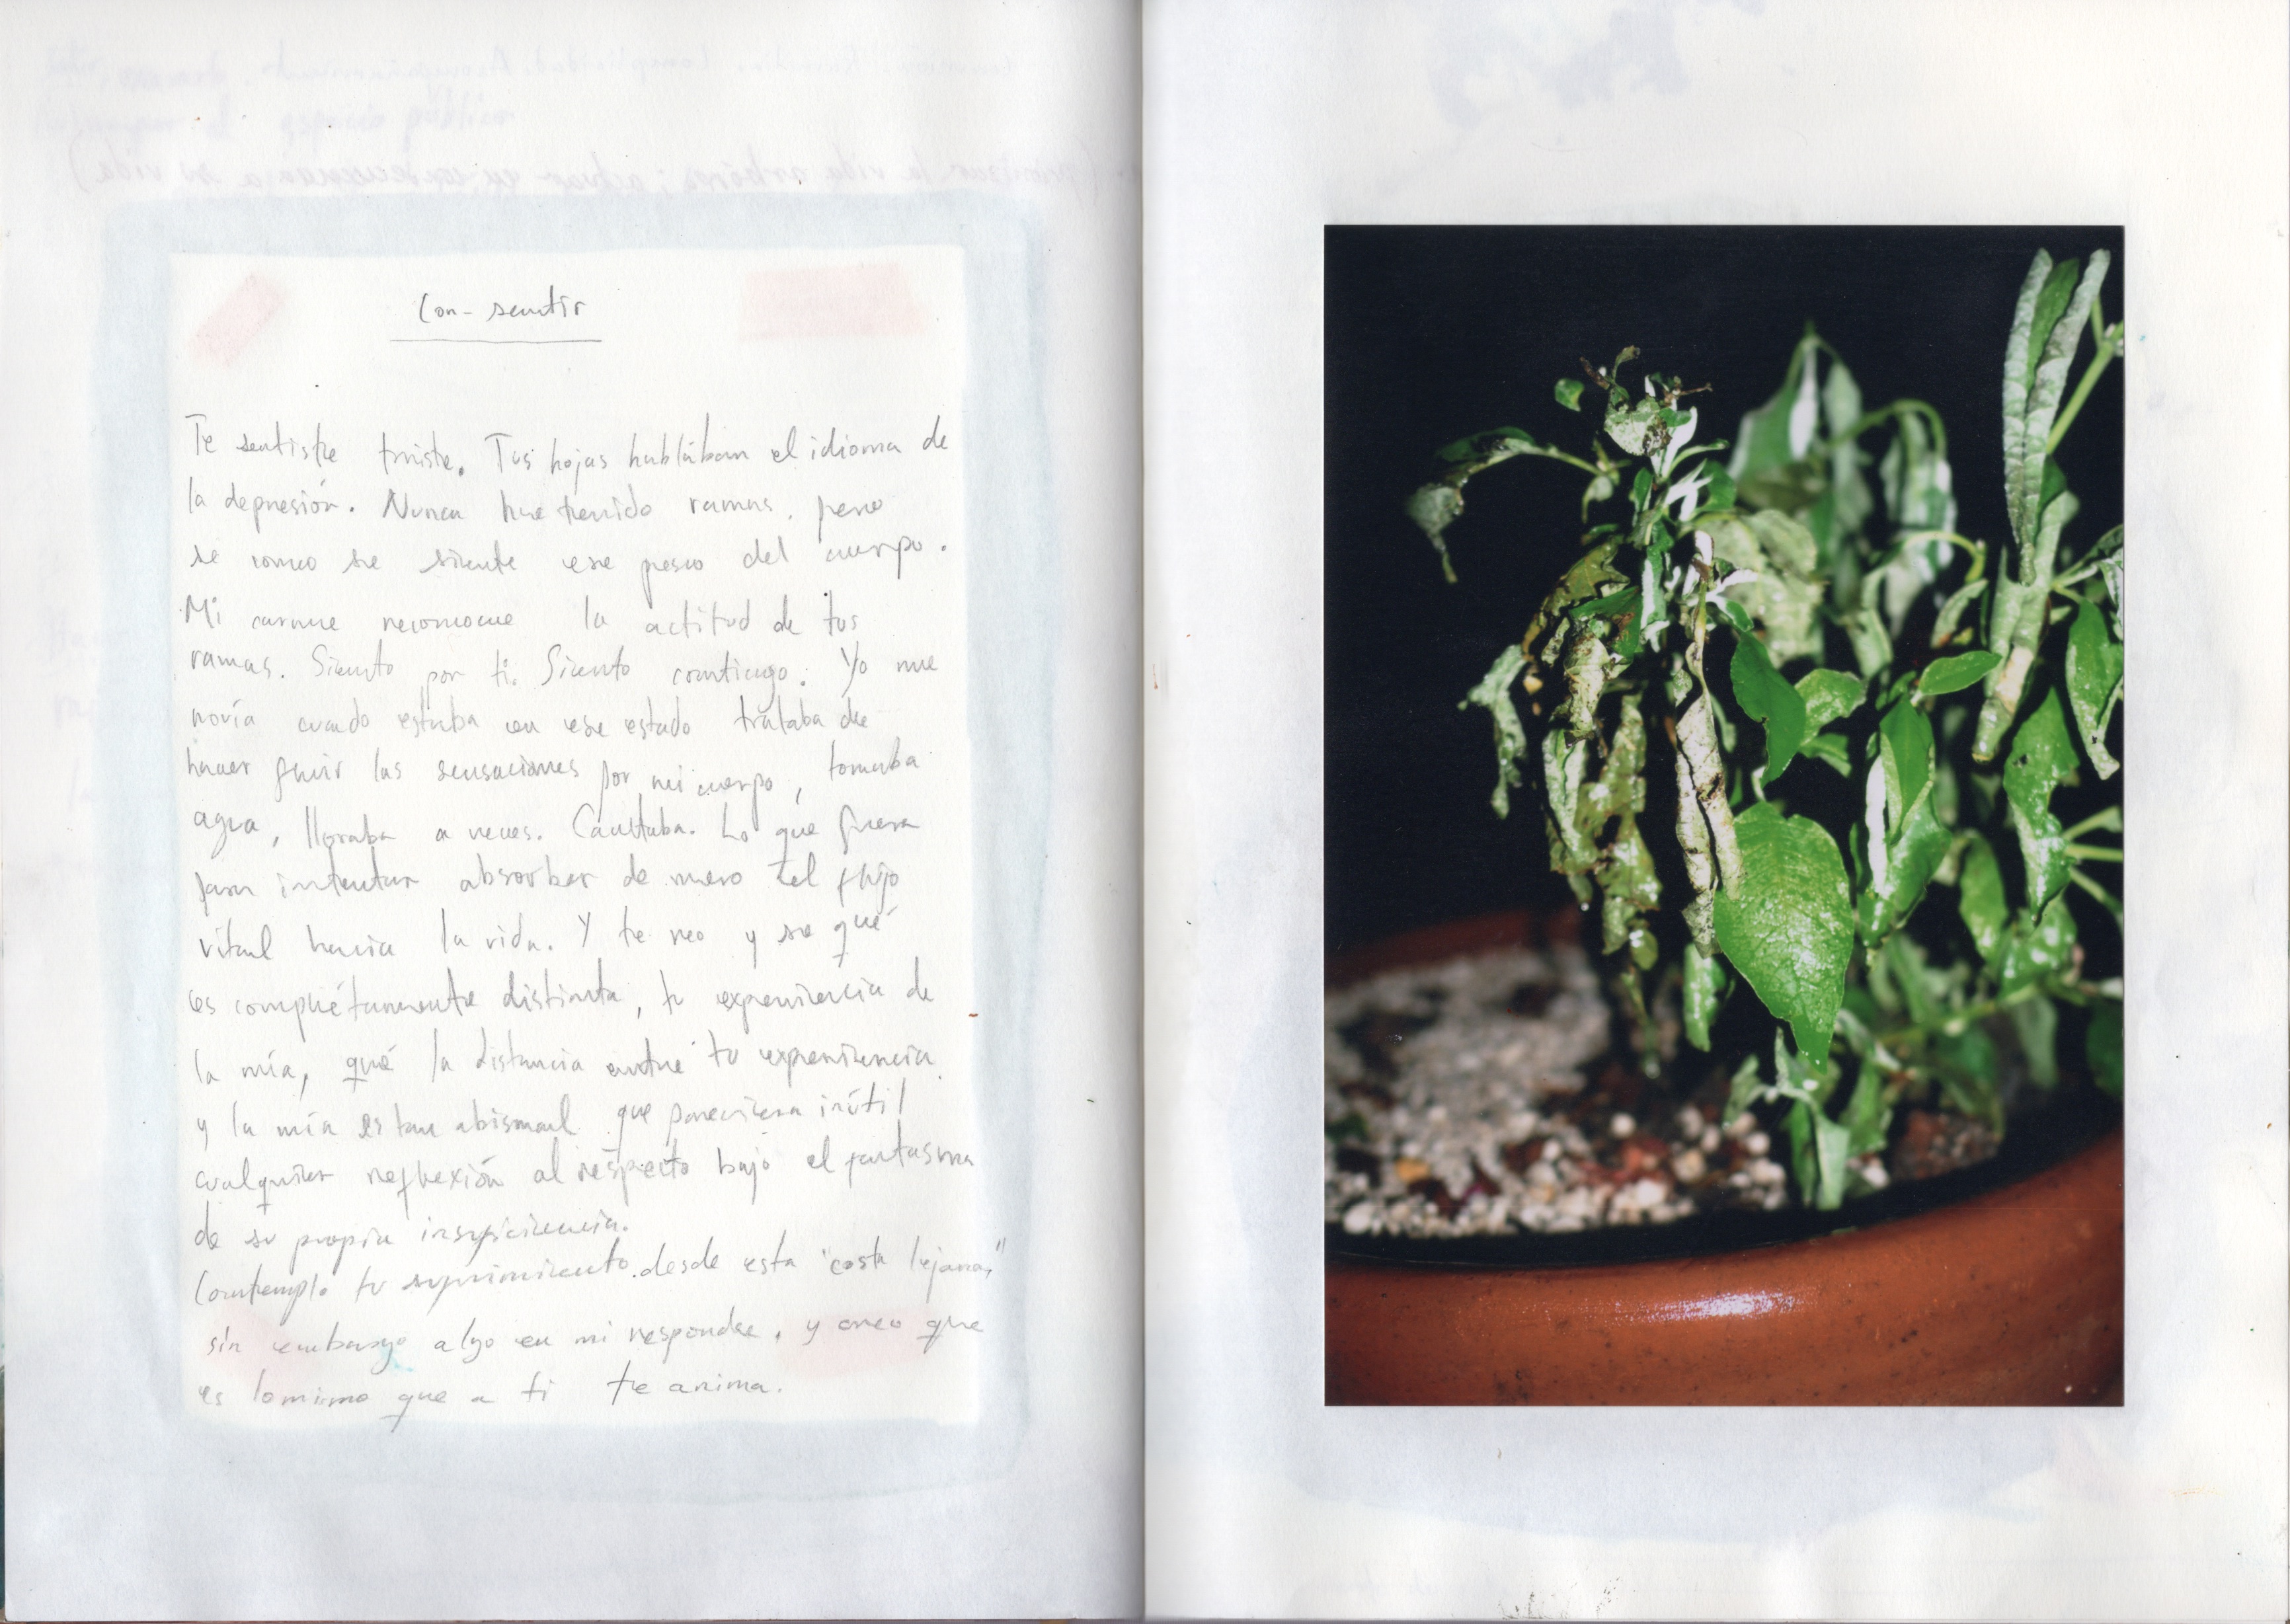 Con-sentir
Te sentiste triste. Tus hojas hablában el idioma de
la depresión. Nunca he tenido ramas, pero
se como se siente ese peso del cuerpo.
Mi carne reconoce la actitud de tus
ramas. Siento por ti. Siento contigo. Yo me
movía cuando estaba en ese estado trataba de
hacer fluir las sensaciones por mi cuerpo, tomaba
agua, lloraba a veces. Cantaba. Lo que fuera
para intentar absorber de nuevo el flujo
vital hacia la vida. Y te veo y se qué
es complétamente distinta, tu experiencia de
la mía, qué la distancia entre tu experiencia
y la mía es tan abismal que pareciera inútil
cualquier reflexión al respecto bajo el fantasma
de su propia insuficiencia.
Contemplo tu sufrimiento desde esta "costa lejana,"
sin embargo algo en mi responde, y creo que
es lo mismo que a ti te anima.
espacio público